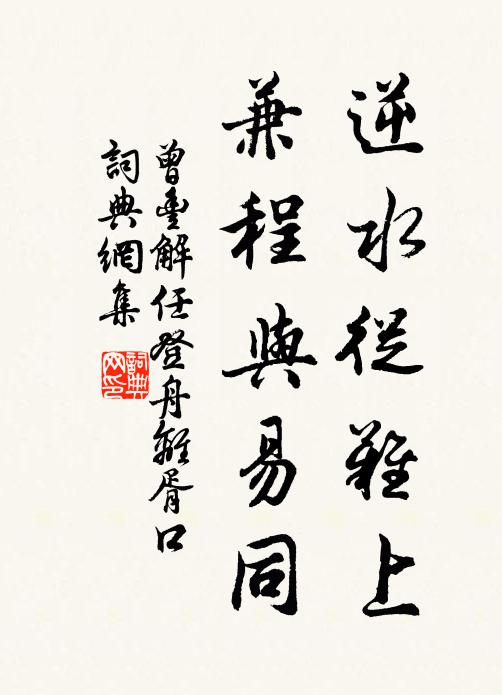 逆水從難上
兼程與易同
曾豐解任登舟離胥口
詞典網集
詞典網印